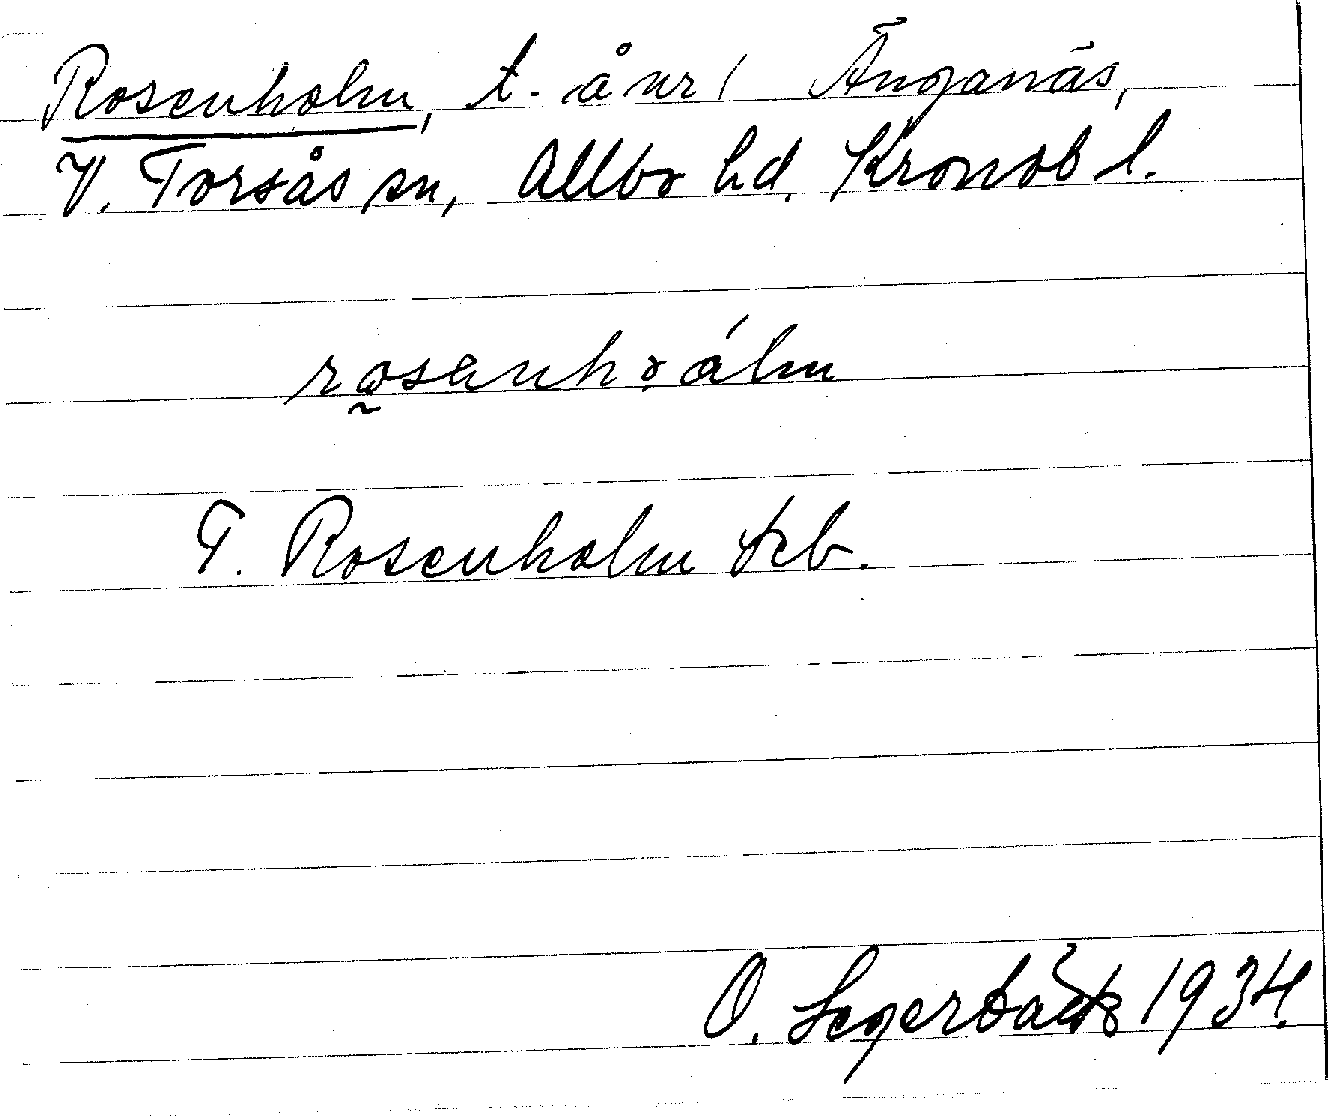 Rosenholm, t. å nr 1 Änganäs,
V. Torsås sn, Allbo hd. Kronob l.
rosenhoálm
T. Rosenholm kb.
O. Segerbäck 1934.